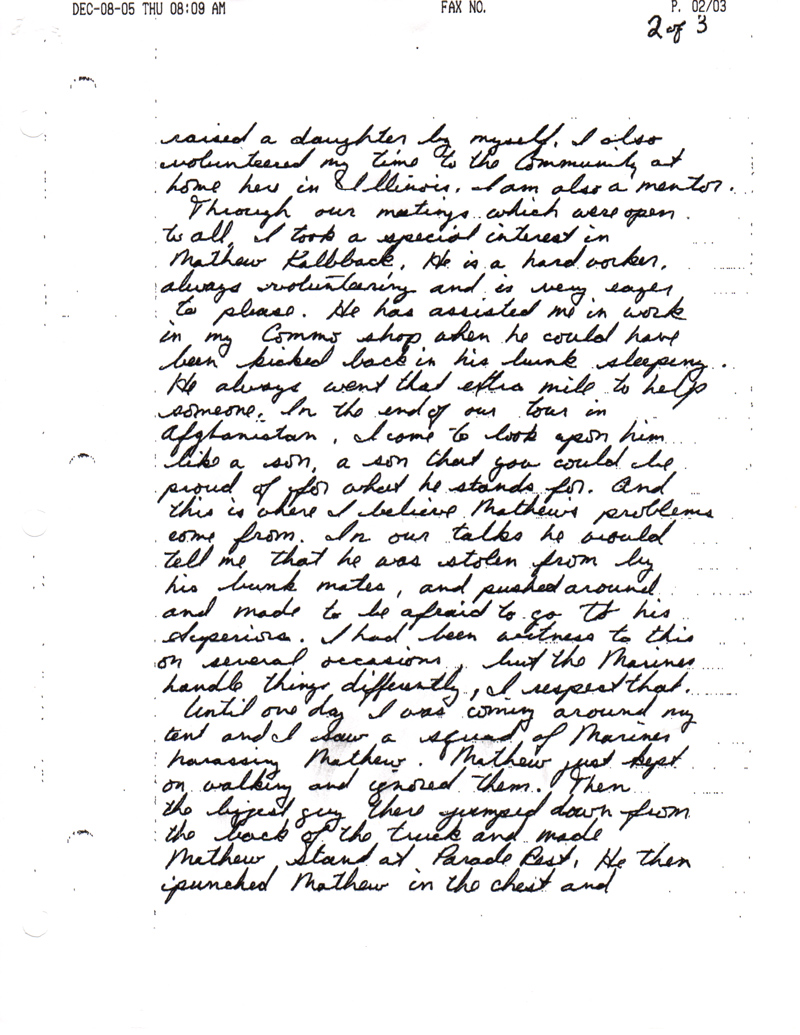 DEC-08-05 THU 08:09 AM FAX NO. P. 02/03
2 of 3
raised a daughter by myself. I also
volunteered my time to the Community at
home here in Illinois. I am also a mentor.
Through our meetings which were open
to all, I took a special interest in
Mathew Kalbback. He is a hard worker,
always volunteering and is very eager
to please. He has assisted me in work
in my Commo shop when he could have
been kicked back in his bunk sleeping.
He always went that extra mile to help
someone. In the end of our tour in
Afghanistan, I come to look upon him
like a son, a son that you could be
proud of for what he stands for. And
this is where I believe Mathew's problems
come from. In our talks he would
tell me that he was stolen from by
his bunk mates, and pushed around
and made to be afraid to go to his
superiors. I had been witness to this
on several occasions, but the Marines
handle things differently, I respect that.
Until one day I was coming around my
tent and I saw a squad of Marines
harassing Mathew. Mathew just kept
on walking and ignored them. Then
the biggest guy there jumped down from
the back of the truck and made
Mathew stand at Parade Rest. He then
punched Mathew in the chest and